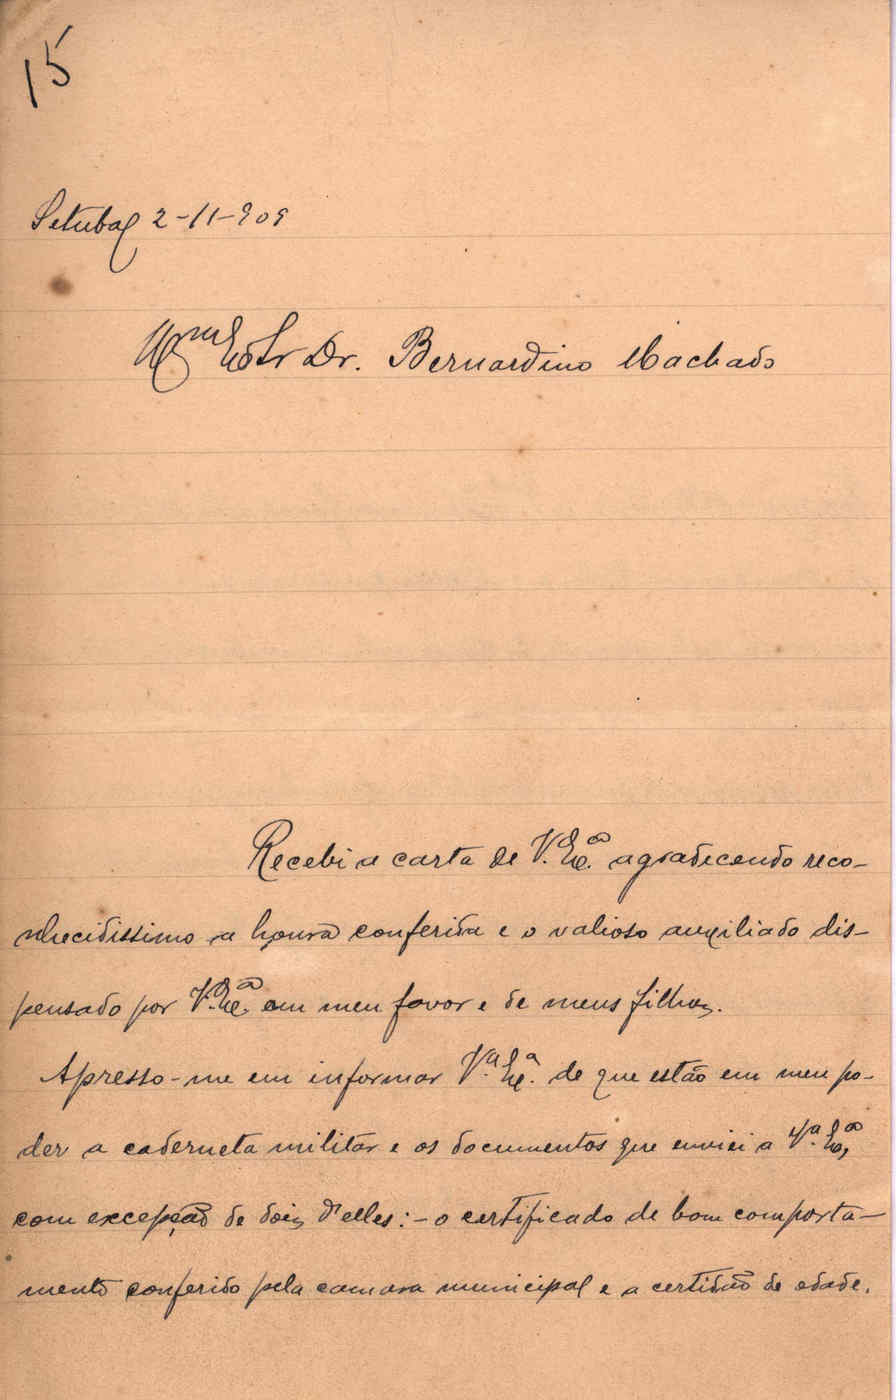 15
Setubal 2-11-909
Illmo Exmo Sr Dr. Bernardino Machado
Recebi a carta de V. Exª agradecendo reco-
nhecidissimo a honra conferida e o valioso auxiliado dis-
pensado por V. Exª em meu favor e de meus filhos.
Apresso-me em informar Vª. Exª. de que estão em meu po-
der a caderneta militar e os documentos que enviei a Vª. Exª,
com excepção de dois d'elles: - o certificado de bom comporta-
mento conferido pela camara municipal e a certidão de edade.